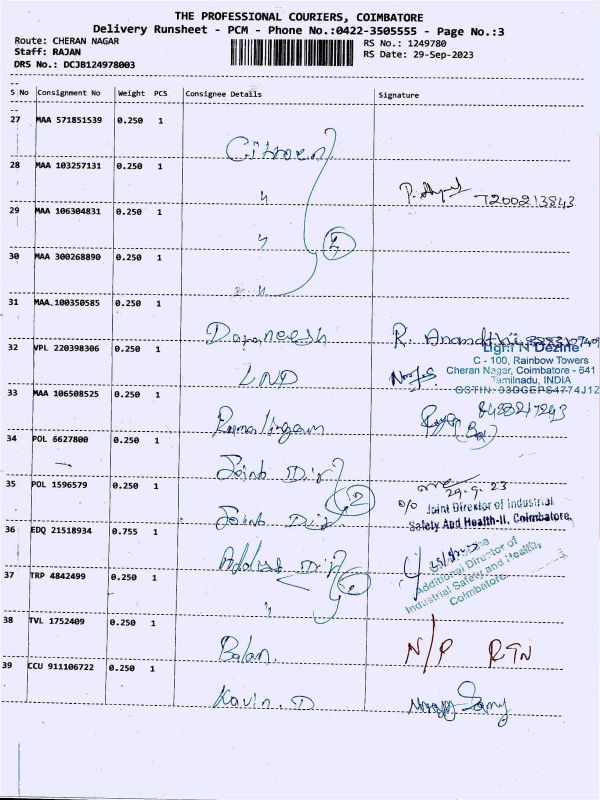 THE PROFESSIONAL COURIERS, COIMBATORE
Delivery Runsheet - PCM - Phone No.:0422-3505555 - Page No.:3
Route: CHERAN NAGAR
RS No.: 1249780
Staff: RAJAN
RS Date: 29-Sep-2023
DRS No.: DCJB124978003
S No Consignment No Weight PCS Consignee Details Signature
27 MAA 571851539 0.250 1
Citroen
28 MAA 103257131 0.250 1
"
7200213843
29 MAA 106304831 0.250 1
"
30 MAA 300268890 0.250 1
"
31 MAA 100350585 0.250 1
R.
32 VPL 220398306 0.250 1
LND
Light N Dezine
C - 100, Rainbow Towers
Cheran Nagar, Coimbatore - 641
Tamilnadu, INDIA
GSTIN: 33DGEPS4774J1Z
33 MAA 106508525 0.250 1
Ramalingam
34 POL 6627800 0.250 1
Joint Dir
35 POL 1596579 0.250 1
Joint Dir
2
29.9.23
o/o Joint Director of Industrial
Safety And Health-II, Coimbatore.
36 EDQ 21518934 0.755 1
Additional Director of
Industrial Safety and Health,
Coimbatore.
37 TRP 4842499 0.250 1
"
38 TVL 1752409 0.250 1
Balan.
N/P RTN
39 CCU 911106722 0.250 1
Kavin. D